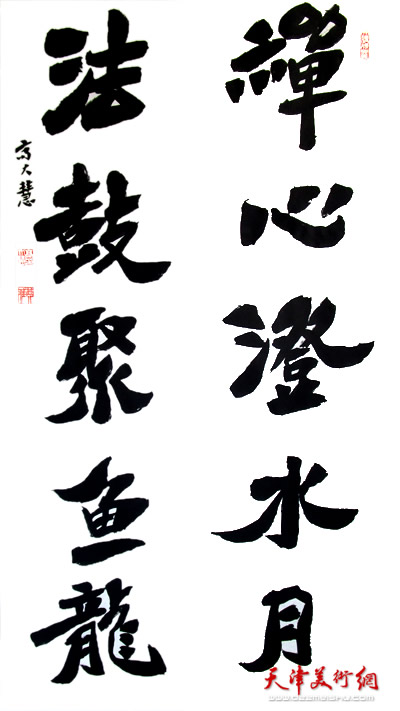 禪心澄水月
法鼓聚鱼龍
高大慧
天津美術網